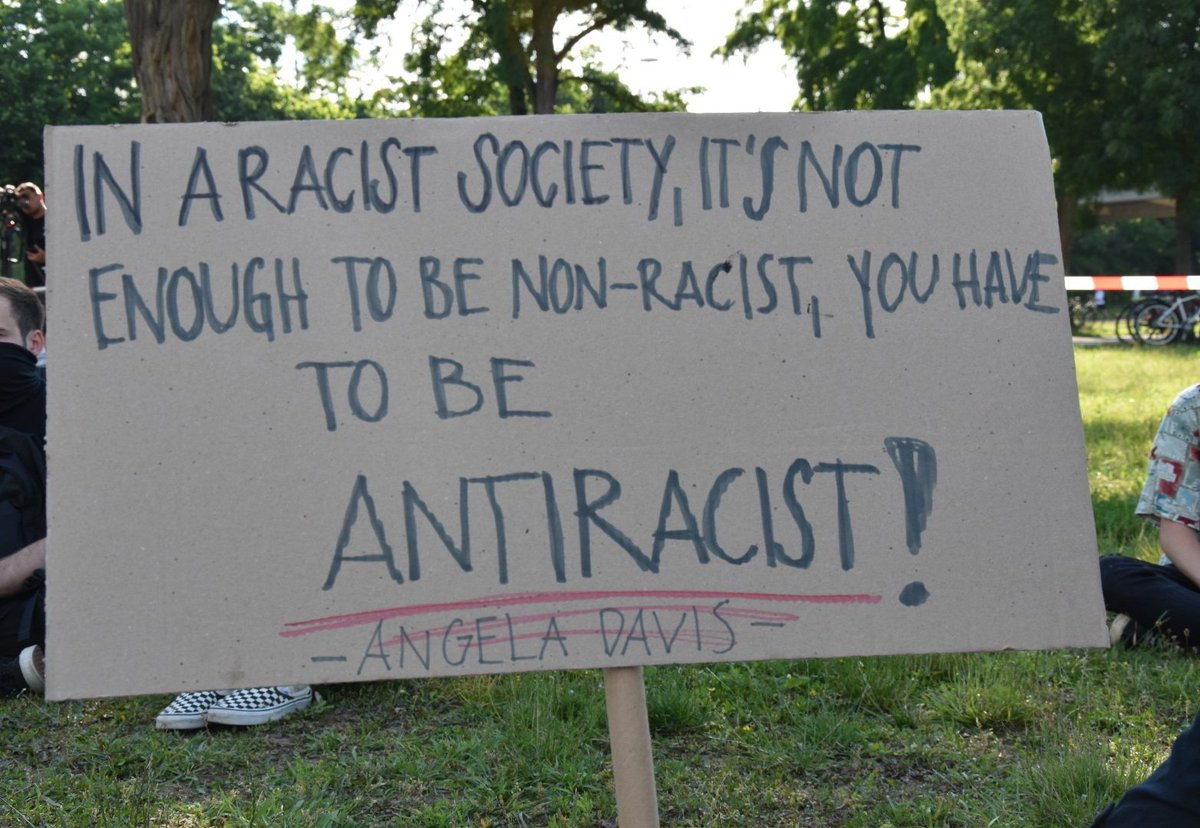 IN A RACIST SOCIETY, IT'S NOT
ENOUGH TO BE NON-RACIST, YOU HAVE
TO BE
ANTIRACIST!
- ANGELA DAVIS -